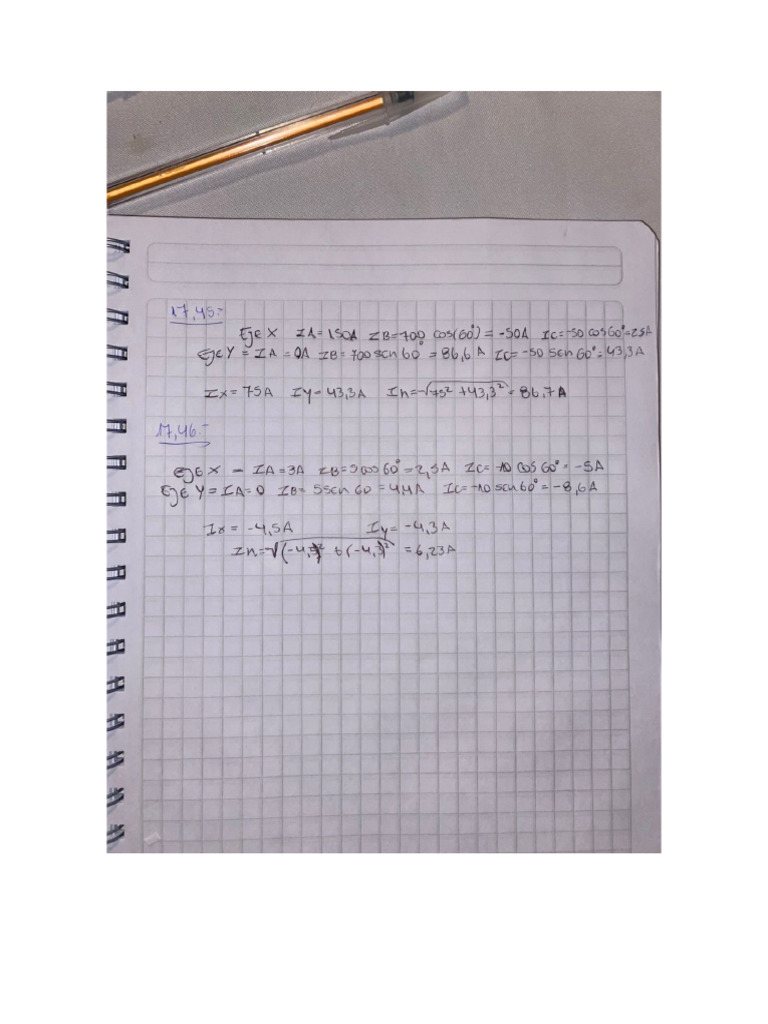 17,45:-
Eje X IA=150A IB=100 cos(60°) = -50A IC=-50 cos60°=25A
Eje Y = IA = 0A IB= 100 sen 60° = 86,6 A IC= -50 sen 60° = 43,3A
Ix = 75A Iy= 43,3A In=√75² +43,3² = 86,7A
17,46:-
eje X - IA=3A IB=5cos60°=2,5A IC= -10 cos60° = -5A
Eje Y = IA=0 IB= 5sen 60 = 4,4A IC=-10 sen60° = -8,6A
Ix = -4,5A Iy= -4,3A
In=√(-4,5)² + (-4,3)² = 6,23A